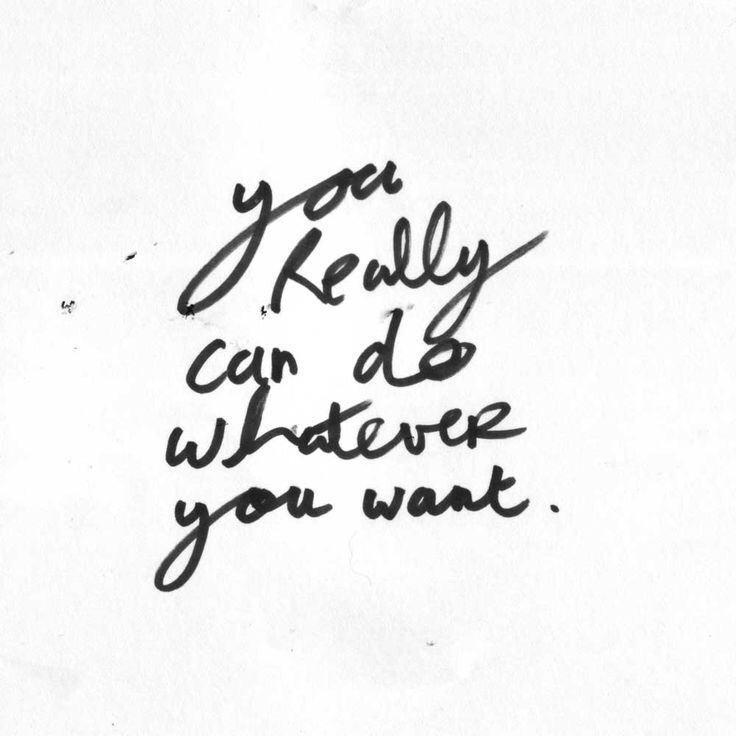 you
Really
can do
whatever
you want.